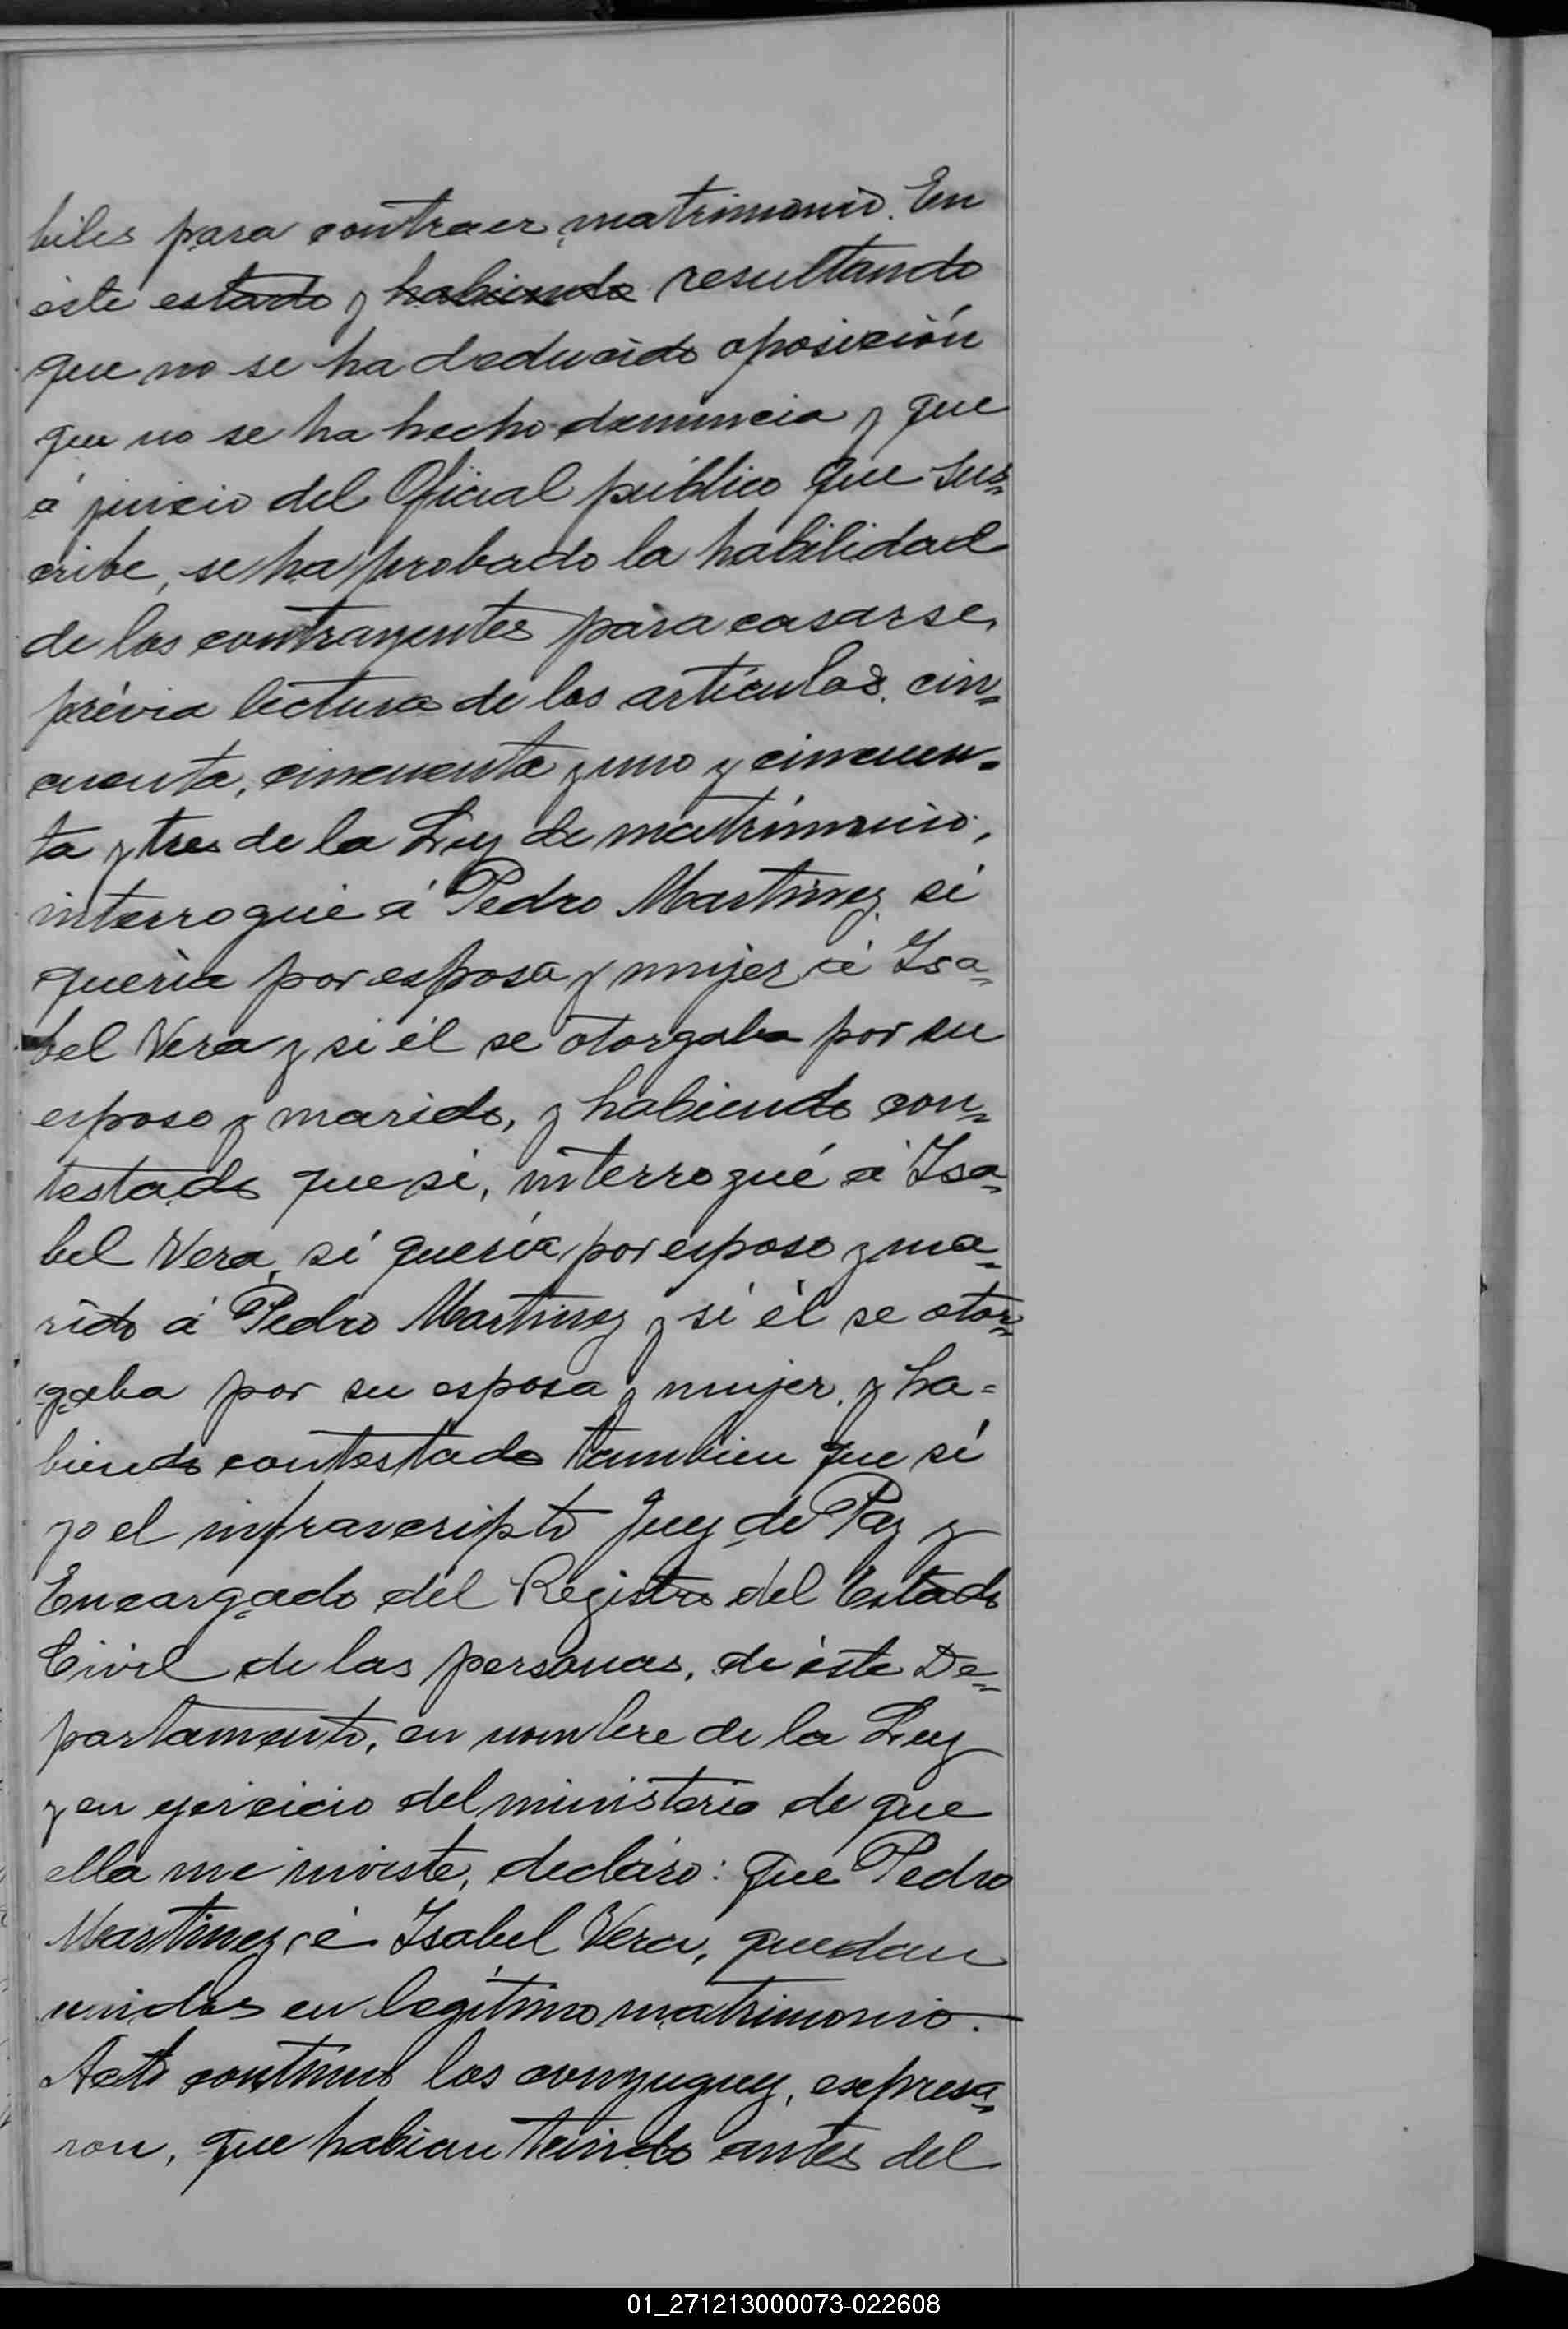 biles para contraer matrimonio. En
éste estado y habiendo resultando
que no se ha deducido oposición
que no se ha hecho denuncia y que
á juicio del Oficial público que sus=
cribe, se ha probado la habilidad
de los contrayentes para casarse,
prévia lectura de los artículos cin=
cuenta, cincuenta y uno y cincuen-
ta y tres de la Ley de matrimonio,
interrogué á Pedro Martinez si
quería por esposa y mujer á Isa=
bel Vera y si él se otorgaba por su
esposo y marido, y habiendo con=
testado que sí, interrogué á Isa=
bel Vera, si quería por esposo y ma=
rido á Pedro Martinez y si él se otor=
gaba por su esposa y mujer, y ha=
biendo contestado tambien que sí
yo el infrascripto Juez de Paz y
Encargado del Registro del Estado
Civil de las personas, de éste De=
partamento, en nombre de la Ley
y en ejercicio del ministerio de que
ella me inviste, declaro: que Pedro
Martinez é Isabel Vera, quedan
unidos en legítimo matrimonio.
Acto contínuo los conyuguez, expresa=
ron, que habian tenido antes del
01_271213000073-022608